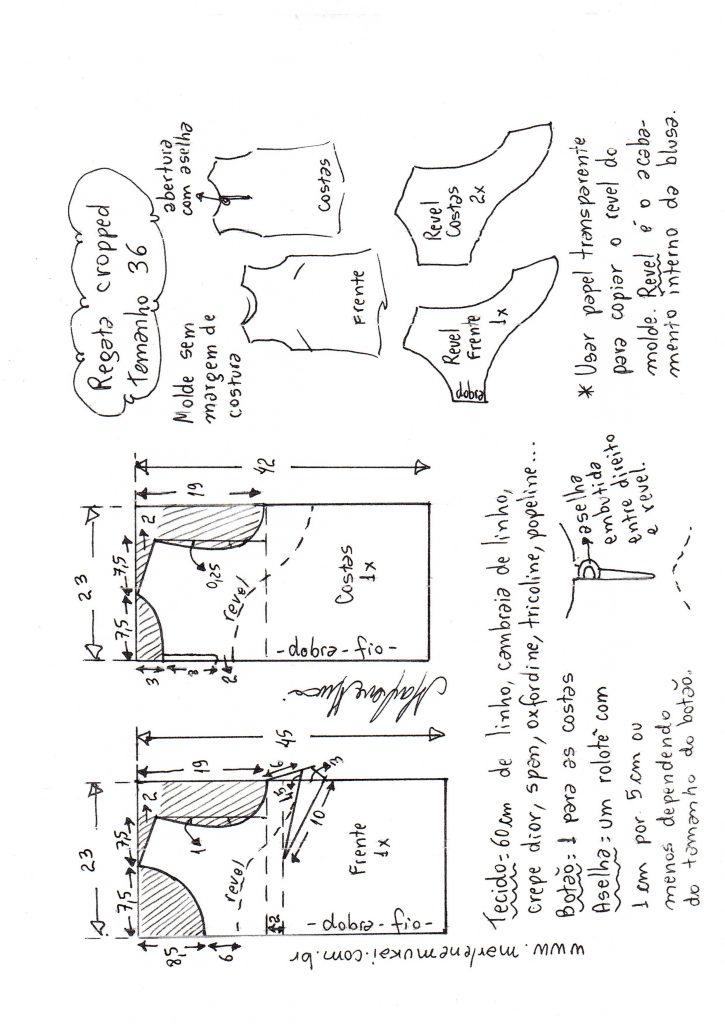 Regata cropped
tamanho 36
Molde sem
margem de
costura
abertura
com aselha
Frente
Costas
Revel
Frente
1x
dobra
Revel
Costas
2x
* Usar papel transparente
para copiar o revel do
molde. Revel é o acaba-
mento interno da blusa.
23
7,5
7,5
2
8,5
6
1
19
45
revel
6
1,5
3
10
2
-dobra-fio-
Frente
1x
www.marlenemukai.com.br
23
7,5
7,5
2
3
8
2
0,25
19
42
revel
-dobra-fio-
Costas
1x
Tecido=60cm de linho, cambraia de linho,
crepe dior, span, oxfordine, tricoline, popeline...
Botão=1 para as costas
Aselha=um rolotê com
1cm por 5cm ou
menos dependendo
do tamanho do botão.
aselha
embutida
entre direito
e revel.